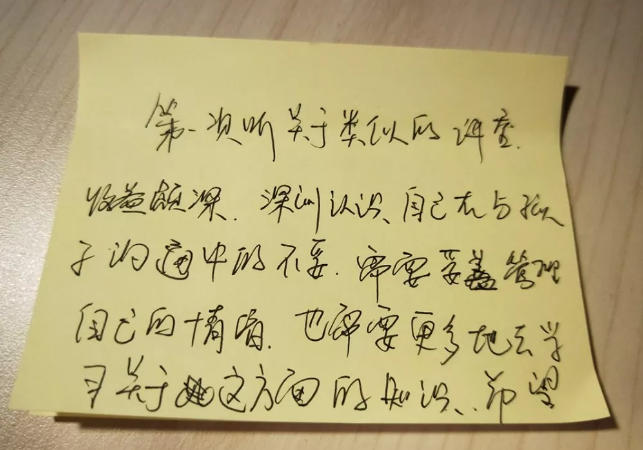 第一次听关于类似的讲座.
收益颇深. 深训认识、自己在与孩
子沟通中的不妥. 需要妥善管理
自己的情绪. 也需要更多地去学
习关于这方面的知识、希望